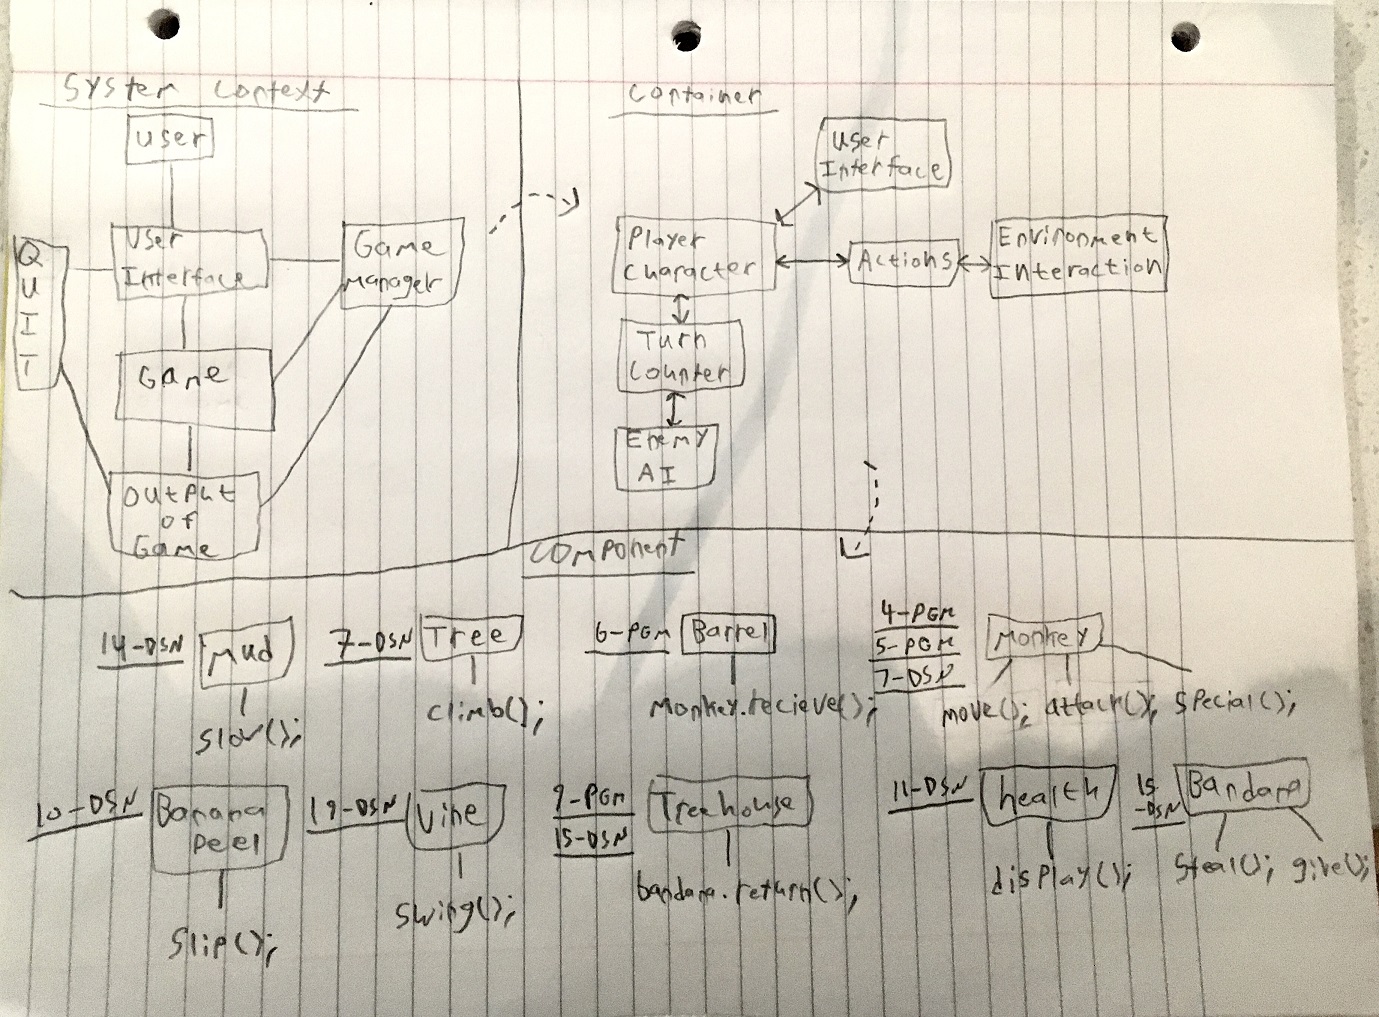 System Context
User
User
Interface
Game
Manager
QUIT
Game
Output
of
Game
Container
User
Interface
Player
Character
Actions
Environment
Interaction
Turn
Counter
Enemy
AI
Component
14-DSN
Mud
slow();
7-DSN
Tree
climb();
6-PGM
Barrel
Monkey.recieve();
4-PGM
5-PGM
7-DSN
Monkey
move(); attack(); special();
10-DSN
Banana
Peel
slip();
19-DSN
Vine
swing();
9-PGM
15-DSN
Treehouse
bandana.return();
11-DSN
health
display();
15
-DSN
Bandana
steal(); give();